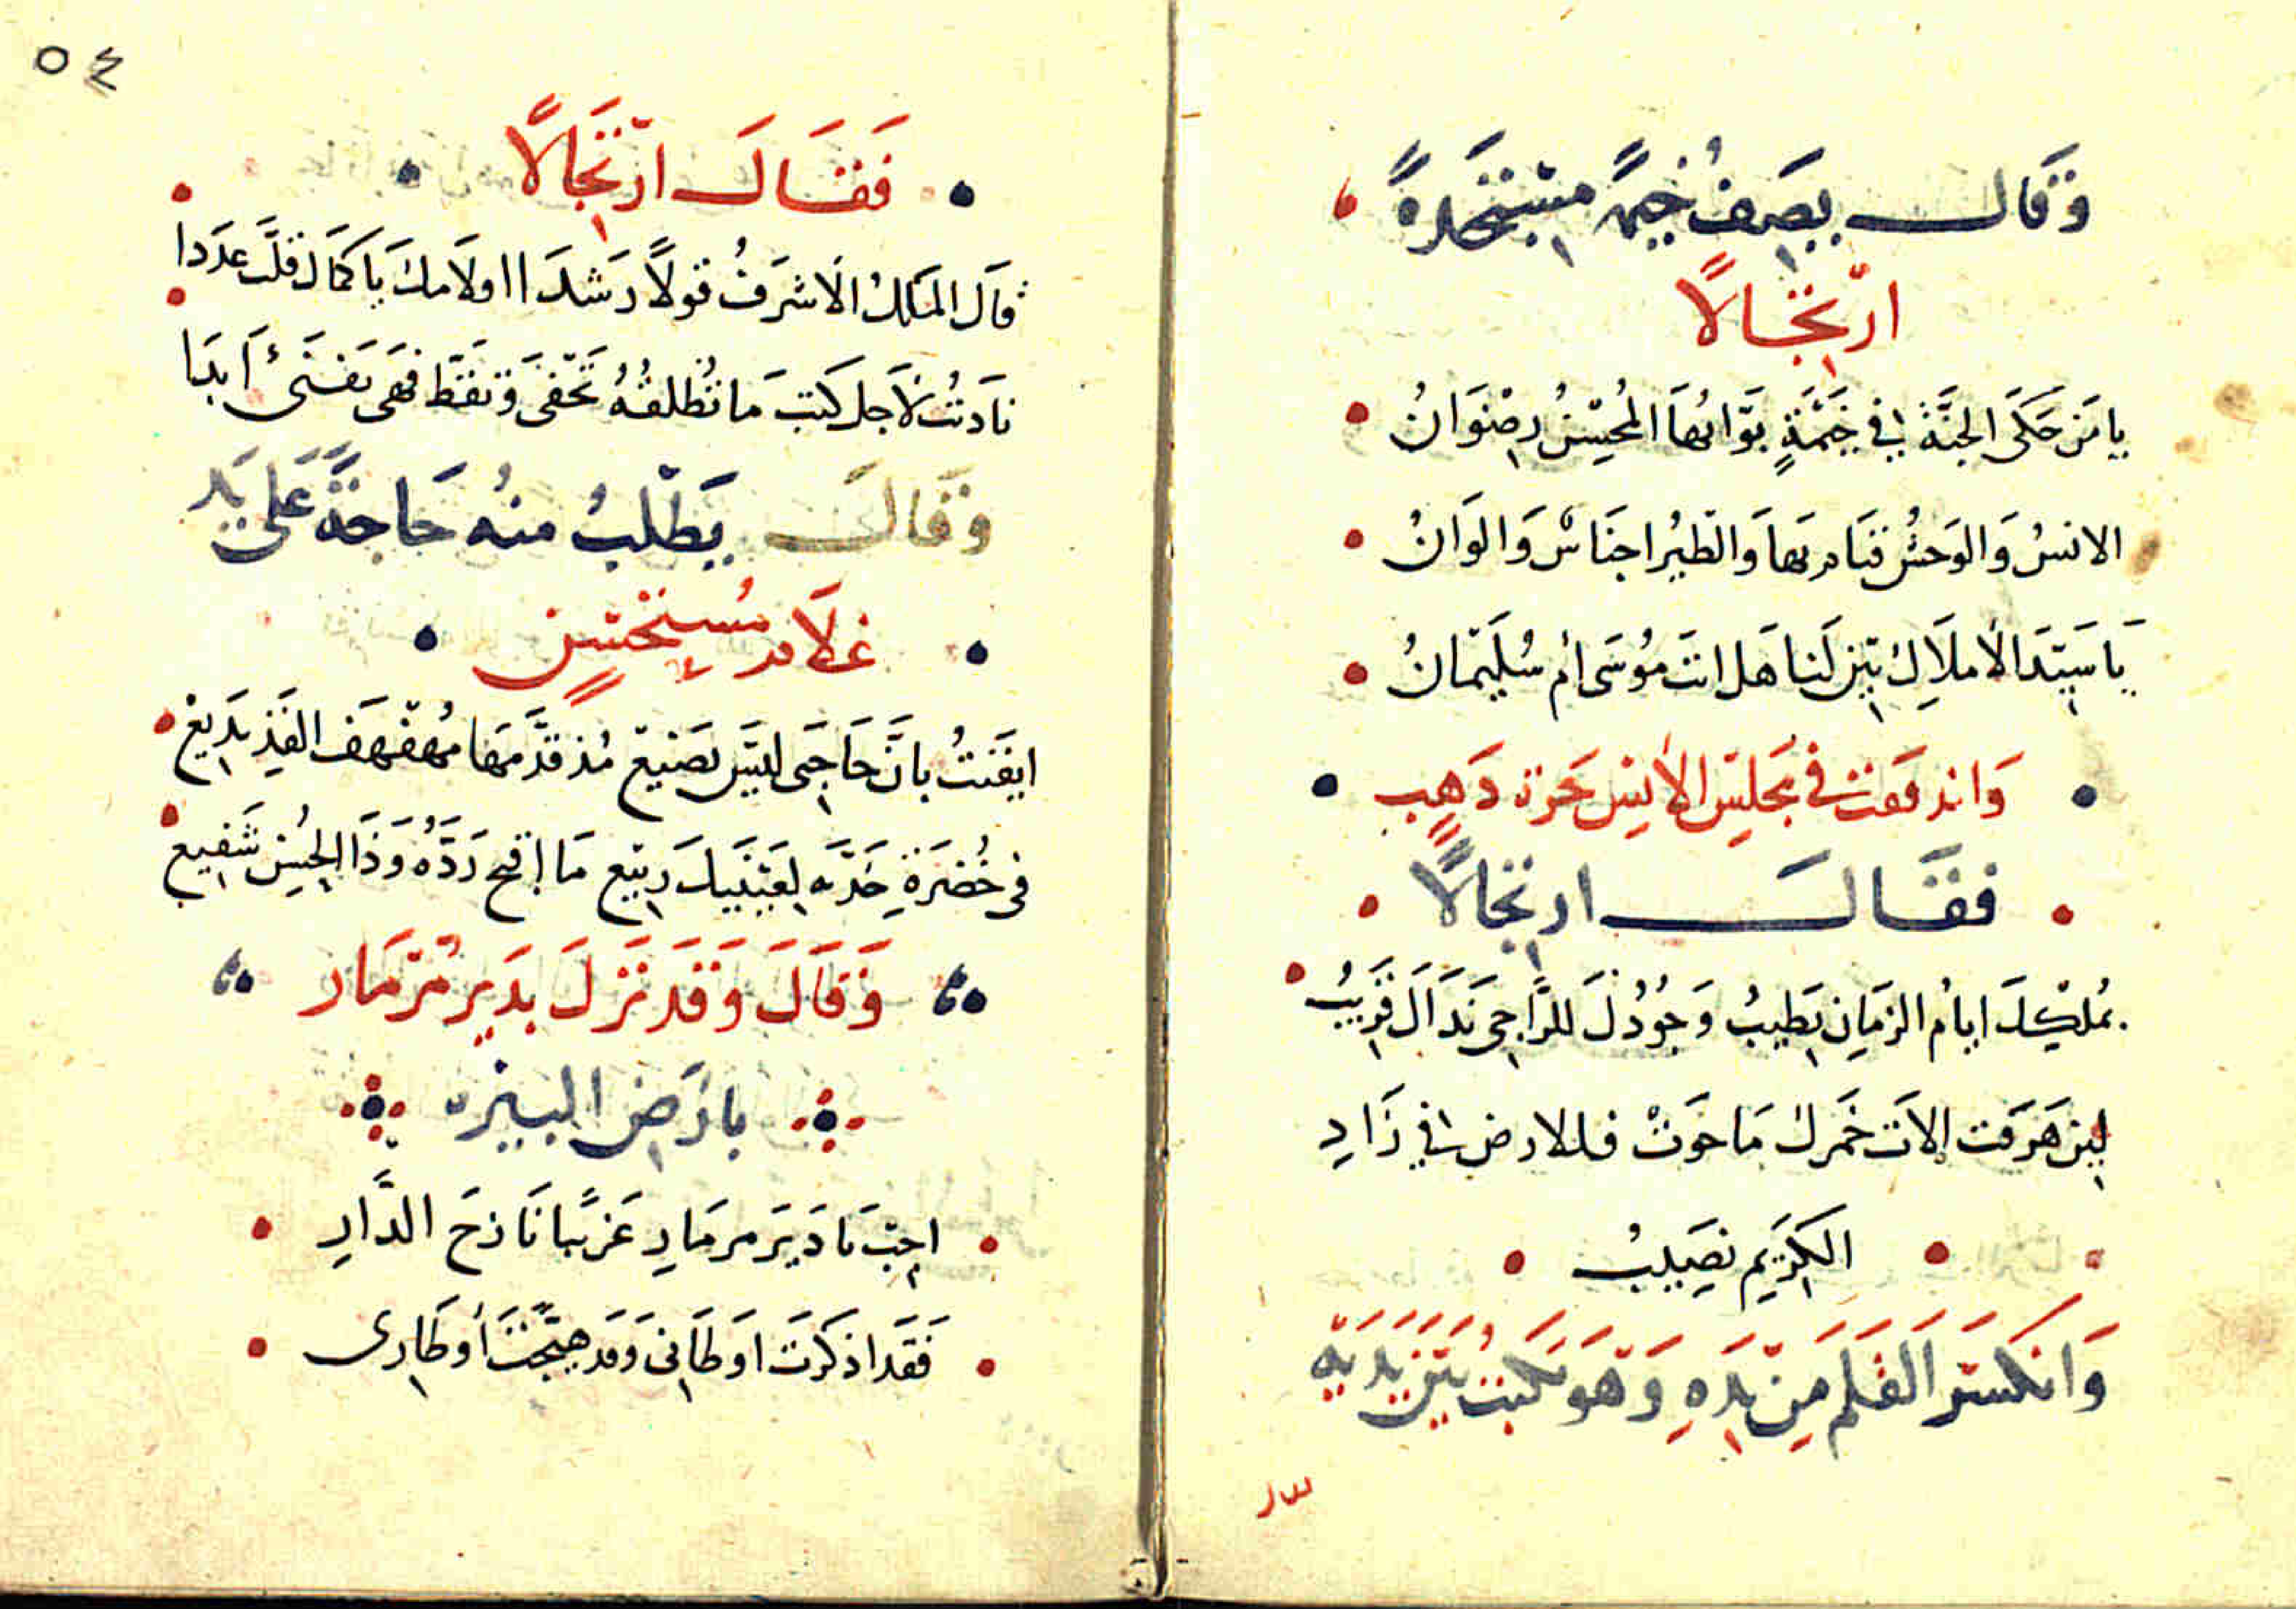 وَقَالَ يصَفُ خيمةً مستنجدةً
ارتجَالًا
يا مَن حَكَى الجنَّة في خَيْمَةٍ بوّابُهَا المُحِسْنُ رِضْوَانُ
الانسُ وَالوَحشُ قنَا مربهَا وَالطَيُر اجنَاسٌ وَالوَانُ
يَا سَيّدَ الأملاِك بيّن لنا هَل انتَ مُوسَى أم سُلَيمَانُ
وَاندفقت في مجلِس الأنِس جَرة ذهبٍ
فقَالَ ارتجَالًا
بمُلكِكَ ايامُ الزمَانِ تَطيبُ وَجُودُكَ للرَّاجي نَدَاكَ قَريُب
لين هَرقت الات خَمرك مَا حَوَتْ فللارض في زَادِ
الكَريَم نصَيبُ
وَانكسَر القَلم مِن يَدهِ وَهَو يَكتبُ بَين يَدَيه
٥٤
فَقَالَ ارتجَالًا
قَال المَلكُ الأشرَفُ قولاً رَشدَا اقلامك يَا كمَال قلَّت عدَدا
نَادَيتُ لأجل كتبَ مَا تُطلقُهُ تَحفى وَتقَط فهَى تَفنَى أبدَا
وَقَالَ يَطْلبُ منُه حَاجَةً عَلى يَد
غلاَم مُستحسنٍ
ايقَنتُ بانَّ حَاجَتى ليَس تَضيع مُذ قدَّمهَا مُهفهَف القَدِ بَديع
فى خُضرَةِ خدَّه لِعَيْنيكَ رَبيع مَا اقبح رَدَّهُ وَذَا الحُسِن شَفِيع
وَقَالَ وَقَد نَزلَ بدَير مُرّمَار
بارَض البيره
اجِب يَا دَيرَ مرمَارِ غَريبًا نَازحَ الدَّارِ
فَقَد اذكرتَ اوَطَانِي وَقد هيَّجتَ أوطَاِرى